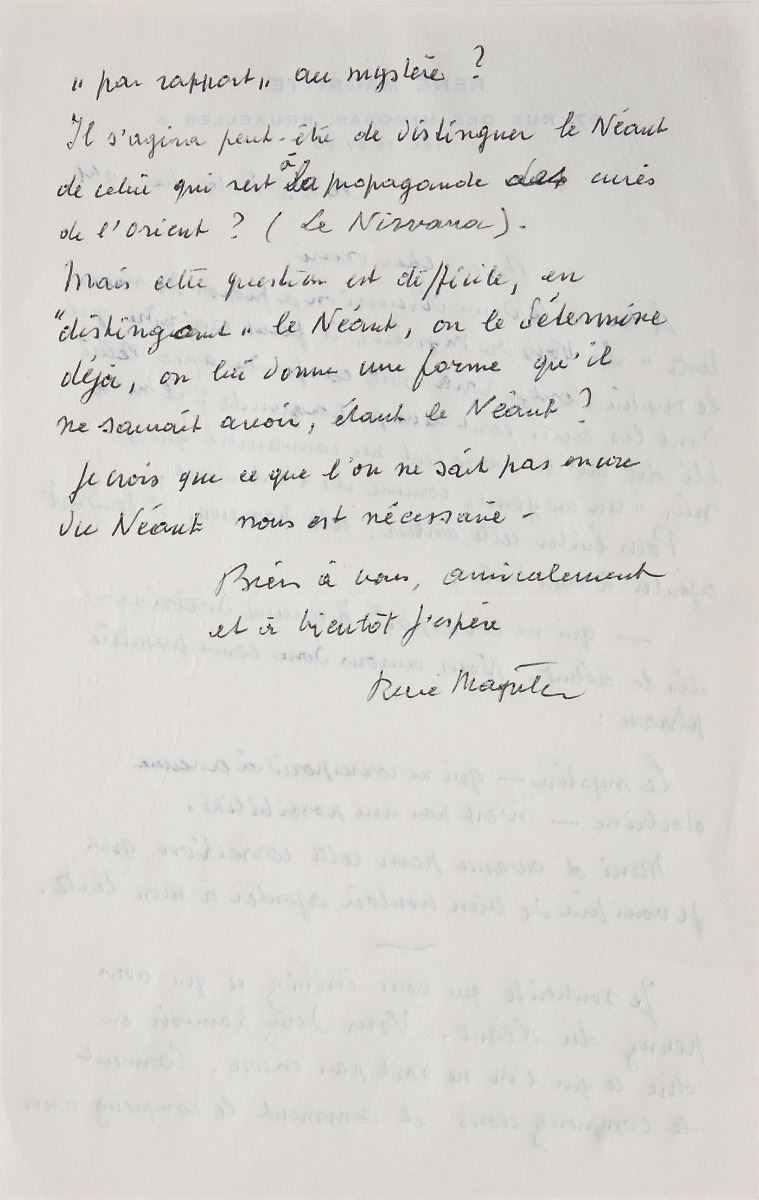 „ par rapport „ au mystère ?
Il s'agira peut-être de distinguer le Néant
de celui qui sert à la propagande des curés
de l'orient ? ( Le Nirvana ).
Mais cette question est difficile, en
"distinguant„ le Néant, on le détermine
déjà, on lui donne une forme qu'il
ne saurait avoir, étant le Néant ?
Je crois que ce que l'on ne sait pas encore
du Néant nous est nécessaire -
Bien à vous, amicalement
et à bientôt j'espère
René Magritte